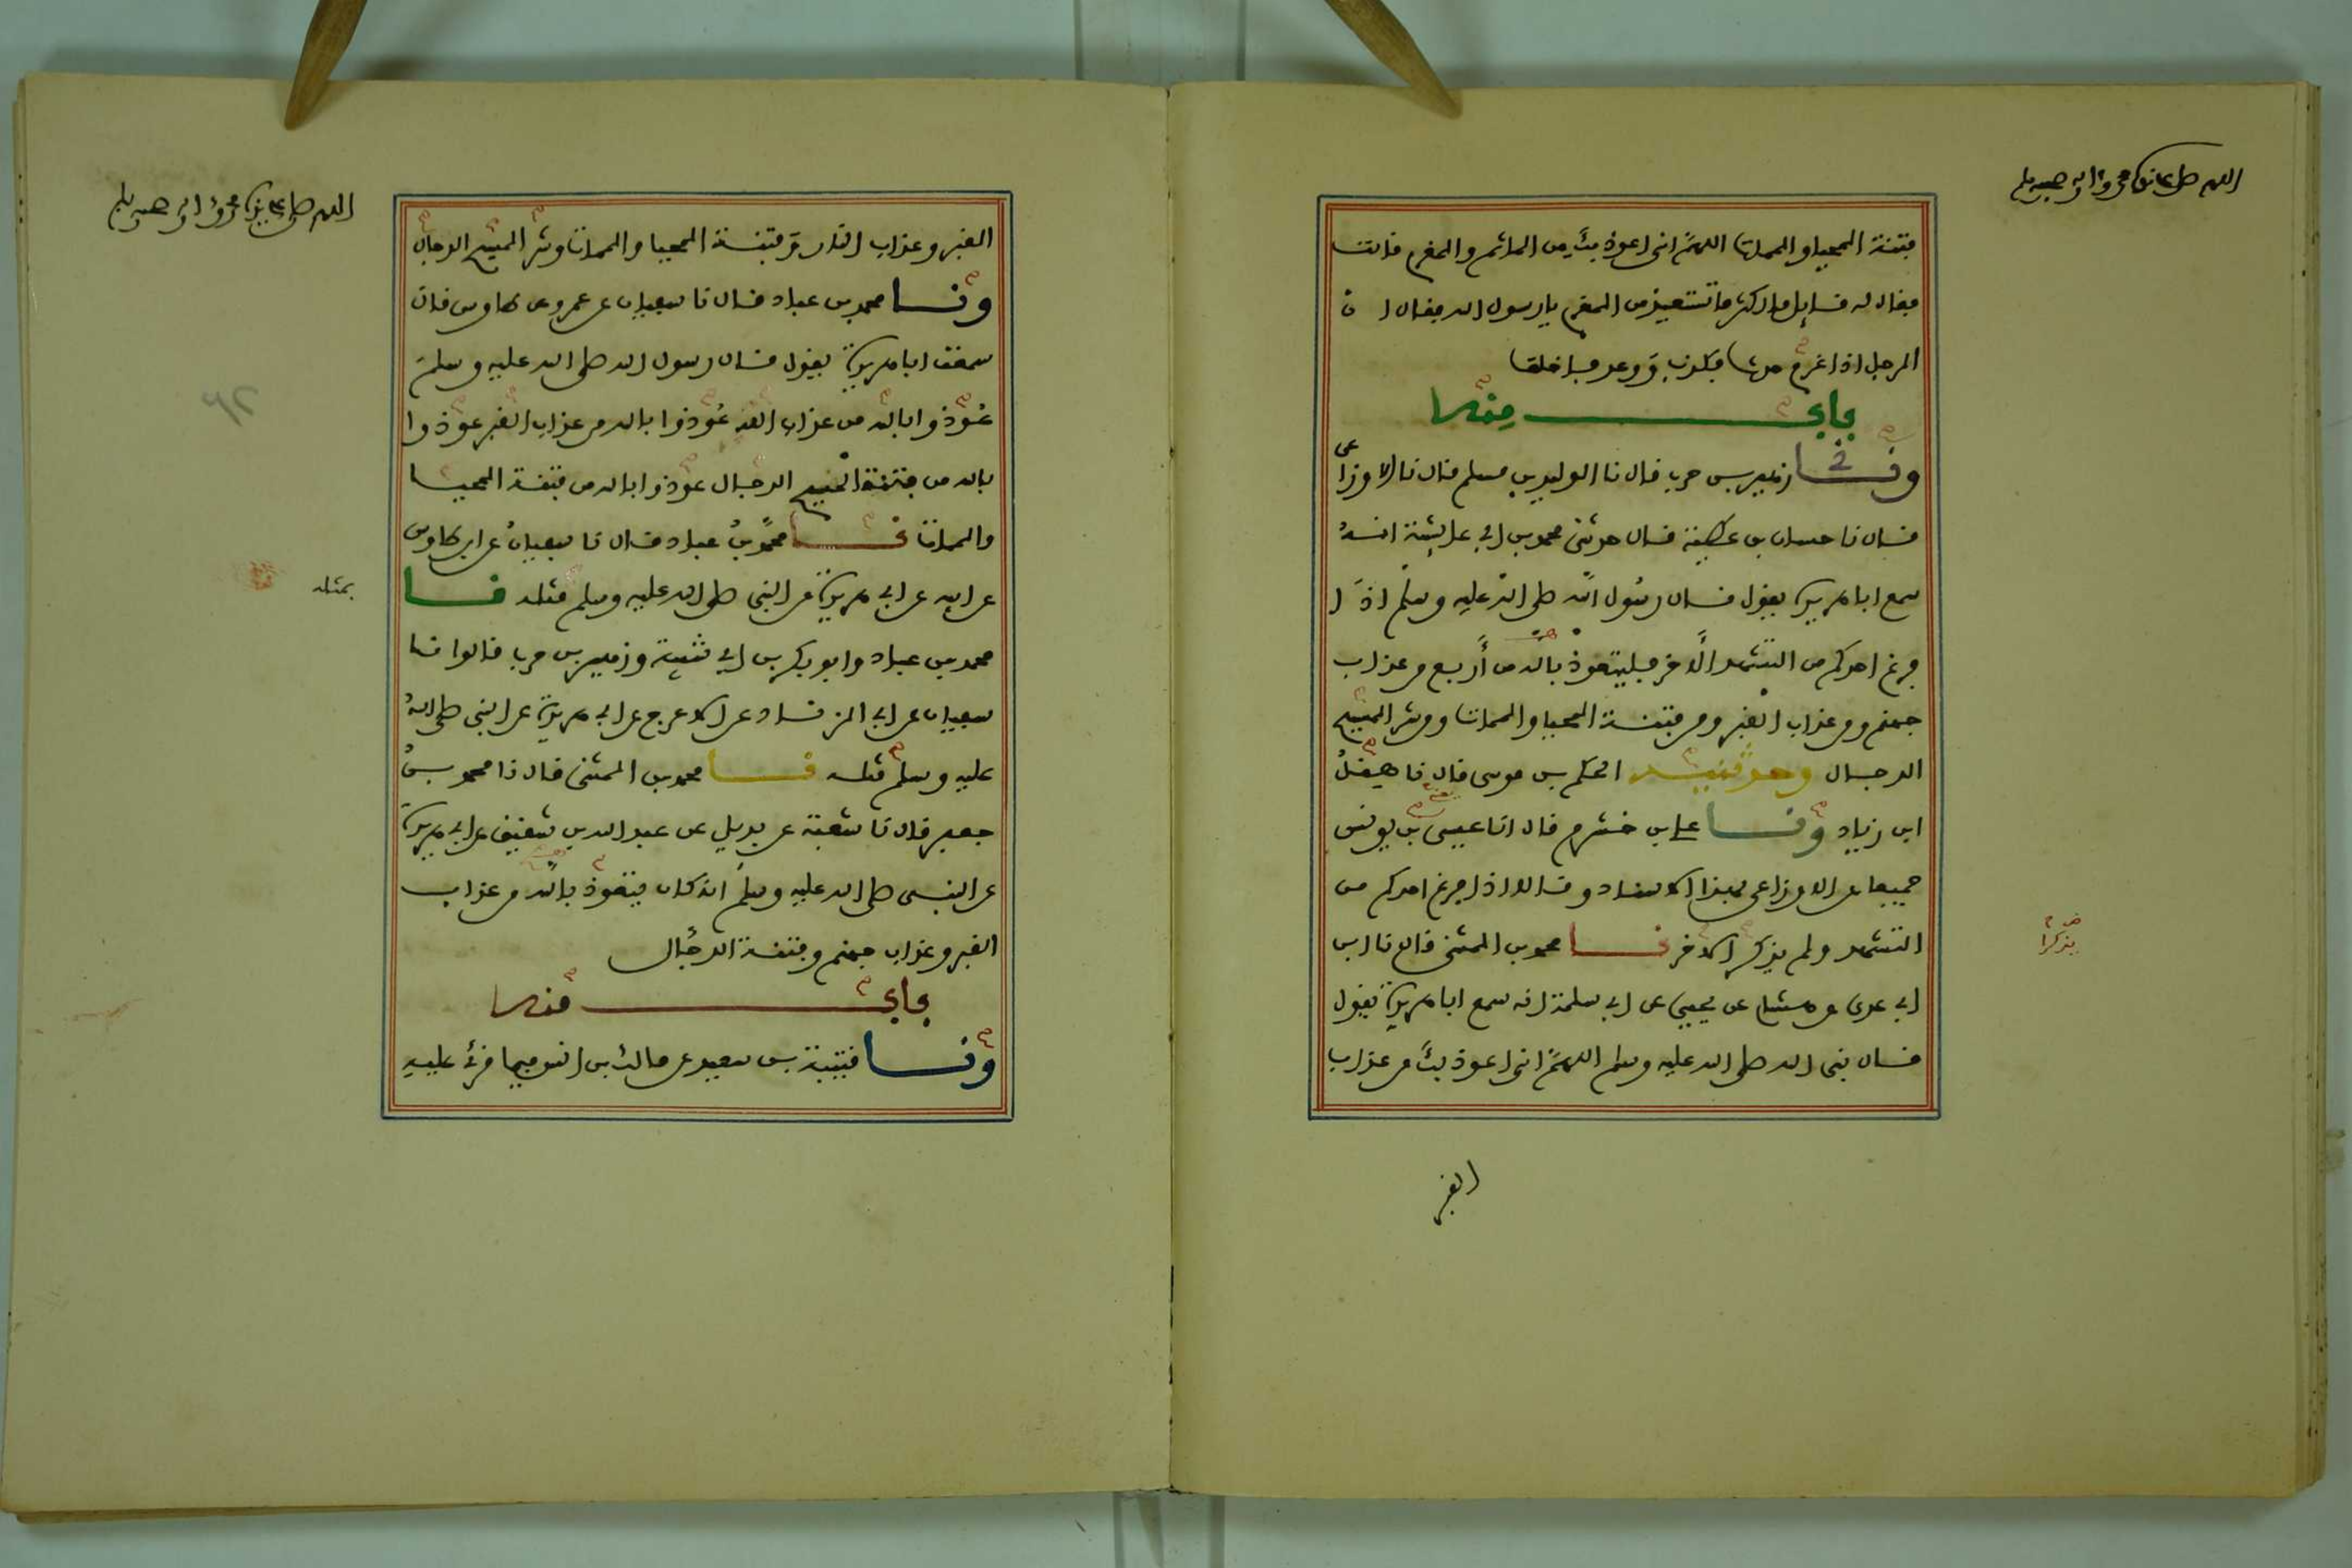 اللهم صل على سيدنا محمد وآله وصحبه وسلم
فتنة المحيا والممات اللهم اني اعوذ بك من الماثم والمغرم قالت
فقال له قايل ما اكثر ما تستعيذ من المغرم يا رسول الله فقال ان
الرجل اذا غرم حدث فكذب ووعد فاخلف
باب منه
ونا زهير بن حرب قال نا الوليد بن مسلم قال نا الاوزاعي
قال نا حسان بن عطية قال حدثني محمد بن ابي عايشة انه
سمع ابا هريرة يقول قال رسول الله صلى الله عليه وسلم اذا
فرغ احدكم من التشهد الاخر فليتعوذ بالله من أربع من عذاب
جهنم ومن عذاب القبر ومن فتنة المحيا والممات ومن شر المسيح
الدجال وحدثنيه الحكم بن موسى قال نا هقل
ابن زياد ونا علي بن خشرم قال انا عيسى بن يونس
جميعا عن الاوزاعي بهذا الاسناد وقالا اذا فرغ احدكم من
التشهد ولم يذكر الاخر نا محمد بن المثنى قال نا ابن
يذكرا
ابي عدي عن هشام عن يحيى عن ابي سلمة انه سمع ابا هريرة يقول
قال نبي الله صلى الله عليه وسلم اللهم اني اعوذ بك من عذاب
القبر
اللهم صل على سيدنا محمد وآله وصحبه وسلم
القبر وعذاب النار وفتنة المحيا والممات وشر المسيح الدجال
ونا محمد بن عباد قال نا سفيان عن عمرو عن طاوس قال
سمعت ابا هريرة يقول قال رسول الله صلى الله عليه وسلم
عوذوا بالله من عذاب الله عوذوا بالله من عذاب القبر عوذوا
بالله من فتنة المسيح الدجال عوذوا بالله من فتنة المحيا
والممات نا محمد بن عباد قال نا سفيان عن ابن طاوس
عن ابيه عن ابي هريرة عن النبي صلى الله عليه وسلم مثله نا
بمثله
محمد بن عباد وابو بكر بن ابي شيبة وزهير بن حرب قالوا نا
سفيان عن ابي الزناد عن الاعرج عن ابي هريرة عن النبي صلى الله
عليه وسلم مثله نا محمد بن المثنى قال نا محمد بن
جعفر قال نا شعبة عن بديل عن عبد الله بن شقيق عن ابي هريرة
عن النبي صلى الله عليه وسلم انه كان يتعوذ بالله من عذاب
القبر وعذاب جهنم وفتنة الدجال
باب منه
ونا قتيبة بن سعيد عن مالك بن انس فيما قرئ عليه